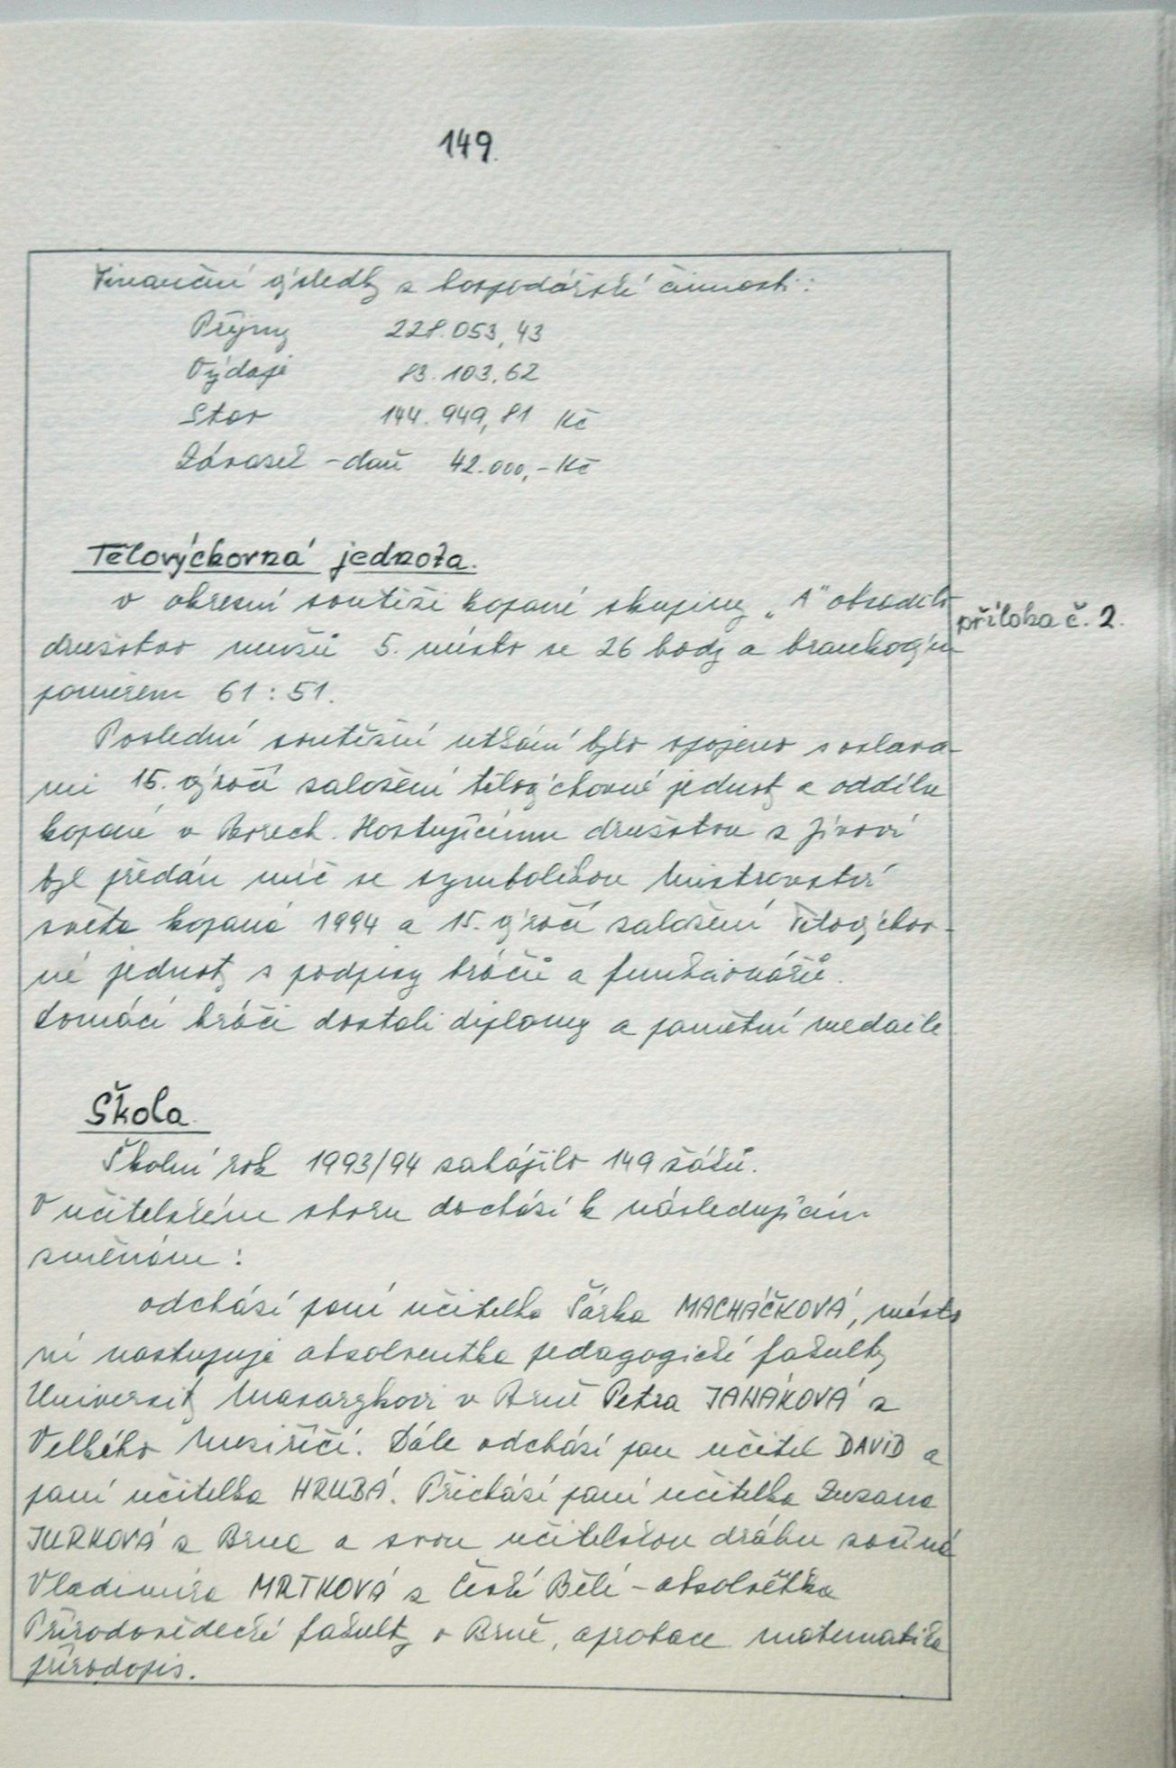 149.
Finanční výsledky z hospodářské činnosti:
Příjmy 228.053,43
Výdaje 83.103,62
Stav 144.949,81 Kč
Závazek - daň 42.000,- Kč
Tělovýchovná jednota.
V okresní soutěži kopané skupiny „A" obsadilo
příloha č. 2.
družstvo mužů 5. místo se 26 body a brankovým
poměrem 61 : 51.
Poslední soutěžní utkání bylo spojeno s oslava-
mi 15. výročí založení tělovýchovné jednoty a oddílu
kopané v Borech. Hostujícímu družstvu z Jívoví
byl předán míč se symbolikou Mistrovství
světa kopané 1994 a 15. výročí založení Tělovýchov-
né jednoty s podpisy hráčů a funkcionářů.
Domácí hráči dostali diplomy a pamětní medaile
Škola.
Školní rok 1993/94 zahájilo 149 žáků.
V učitelském sboru dochází k následujícím
změnám :
odchází paní učitelka Šárka MACHÁČKOVÁ, místo
ní nastupuje absolventka pedagogické fakulty
University Masarykovi v Brně Petra JANÁKOVÁ z
Velkého Meziříčí. Dále odchází pan učitel DAVID a
paní učitelka HRUBÁ. Přichází paní učitelka Zuzana
JURKOVÁ z Brna a svou učitelskou dráhu začíná
Vladimíra MRTKOVÁ z České Bělé - absolvětka
Přírodovědecké fakulty v Brně, aprobace matematika
přírodopis.